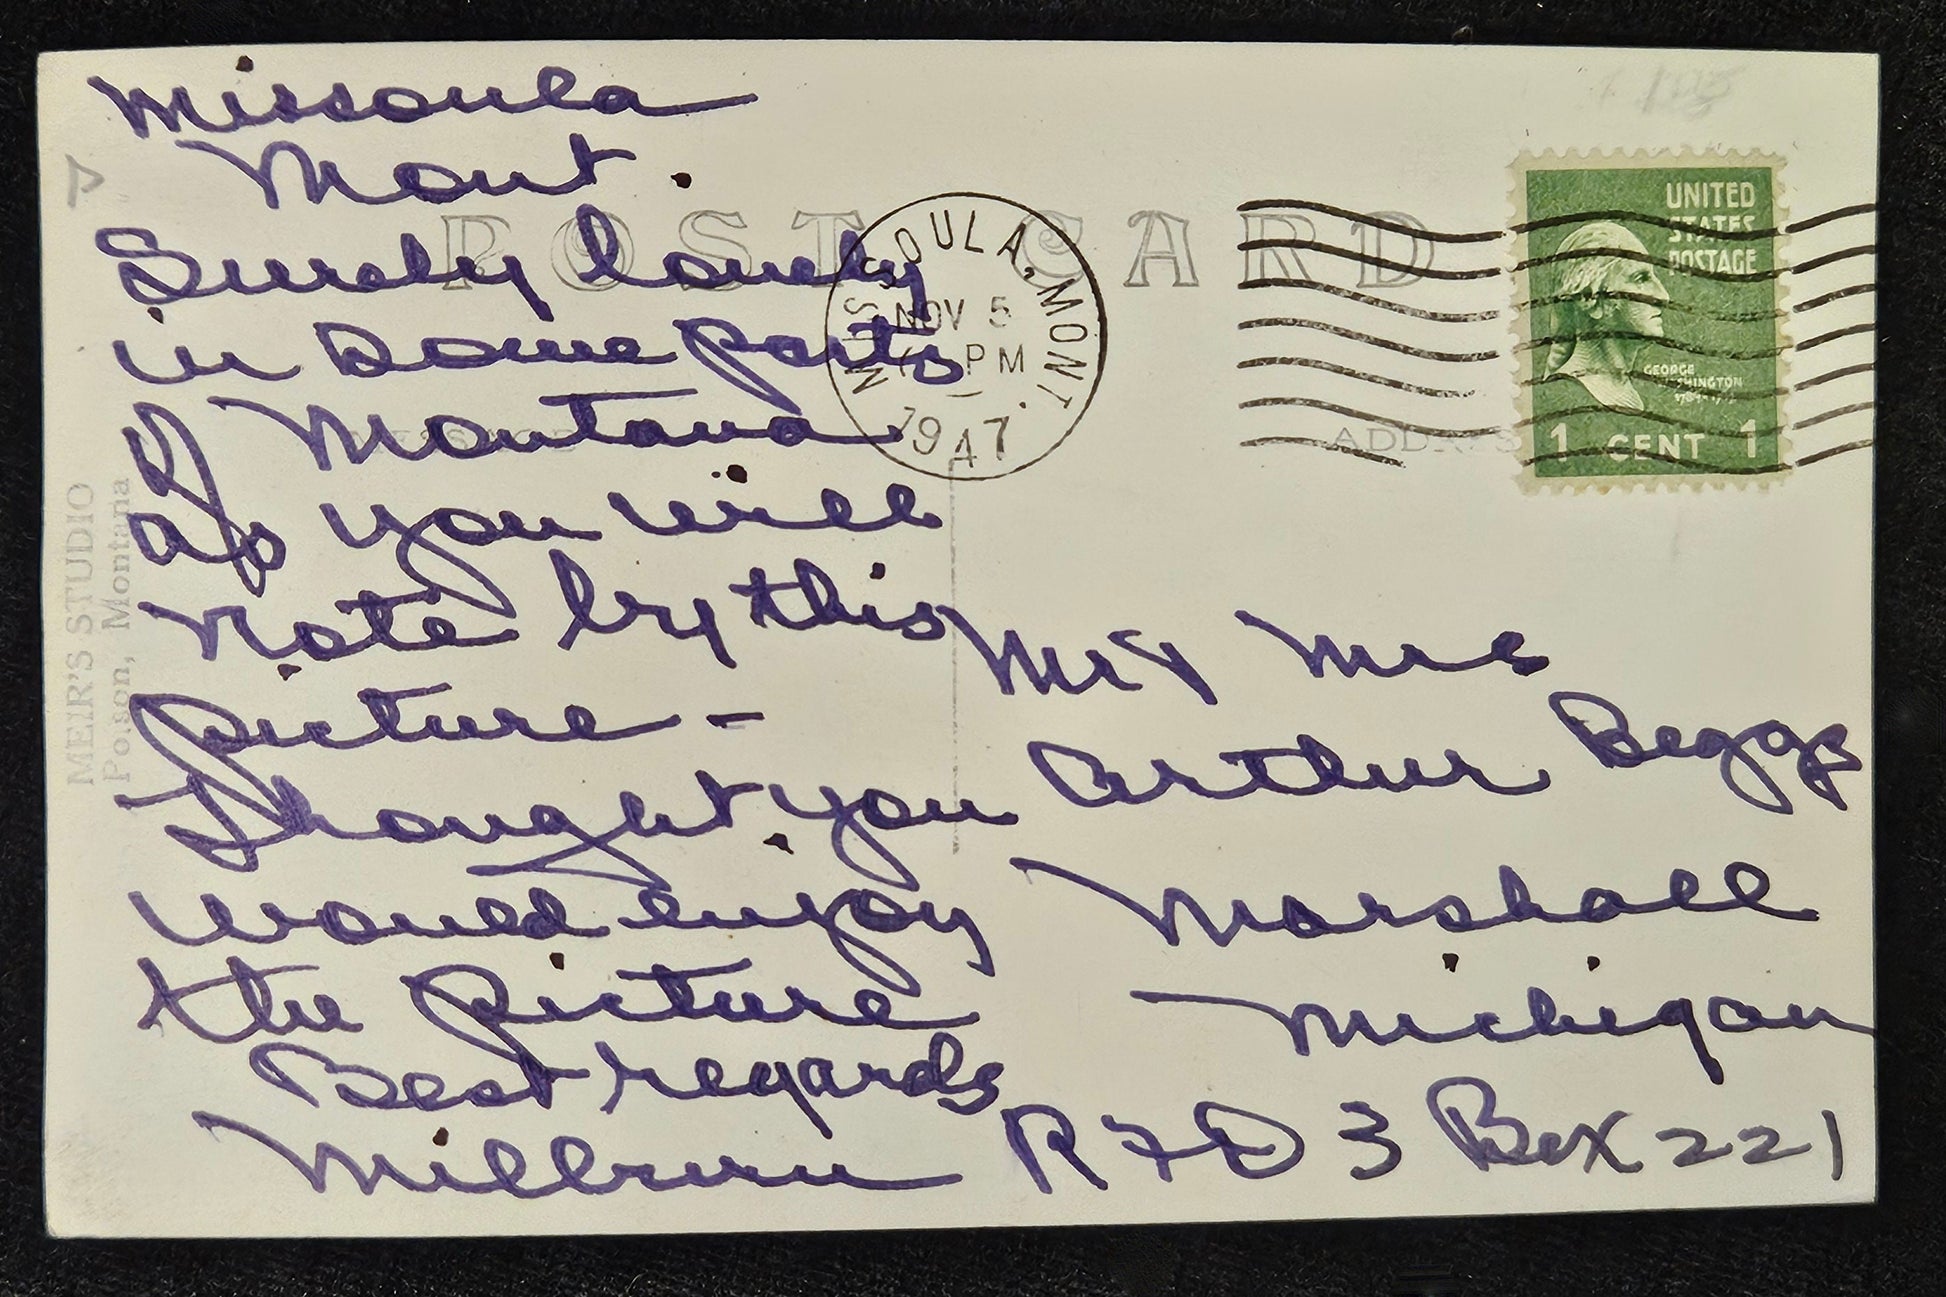 Missoula
Mont.
Surely lovely
in Some parts
of Montana
as you will
Note by this
picture -
Thought you
would enjoy
the picture
Best regards
Millrun
POST CARD
MISSOULA, MONT.
NOV 5
PM
1947
UNITED
STATES
POSTAGE
GEORGE
WASHINGTON
1 CENT 1
ADDRESS
Mr & Mrs
Arthur Beggs
Marshall
Michigan
RFD 3 Box 221
MEIR'S STUDIO
Polson, Montana